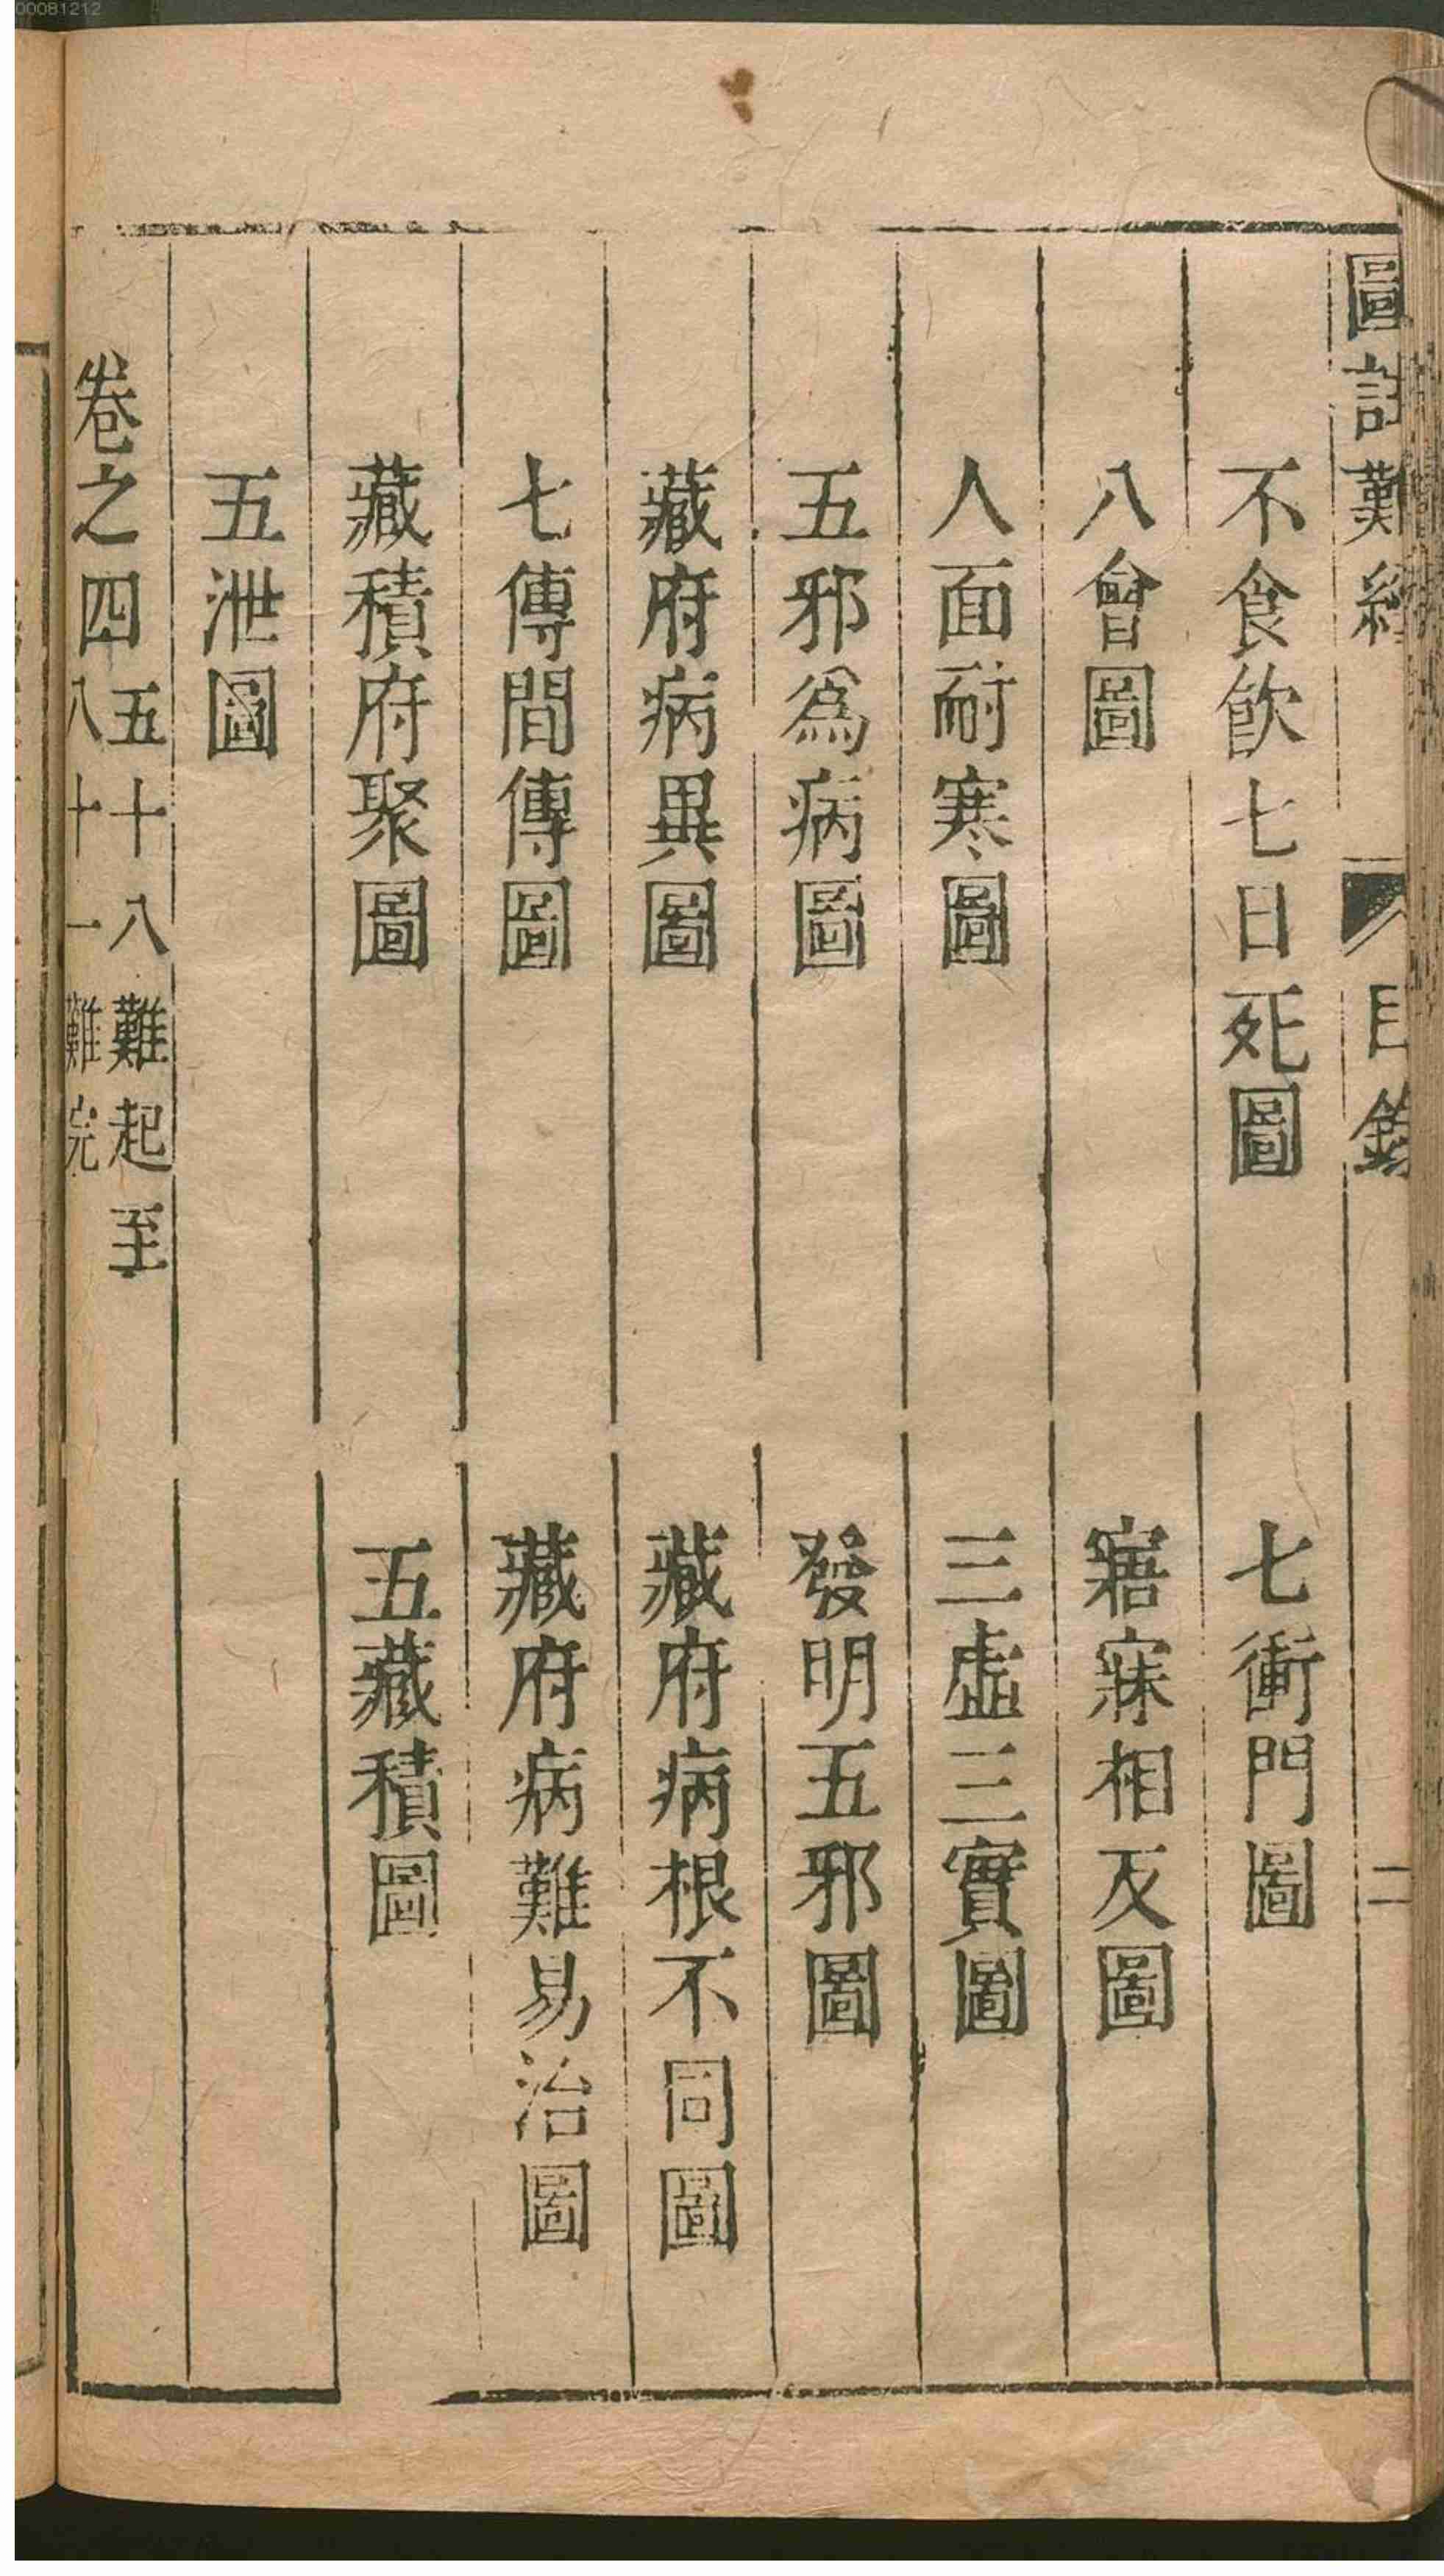 00081212
圖註難經 目錄 二
不食飲七日死圖 七衝門圖
八會圖 寤寐相反圖
人面耐寒圖 三虛三實圖
五邪為病圖 發明五邪圖
藏府病異圖 藏府病根不同圖
七傳間傳圖 藏府病難易治圖
藏積府聚圖 五藏積圖
五泄圖
卷之四 五十八難起至
八十一難完